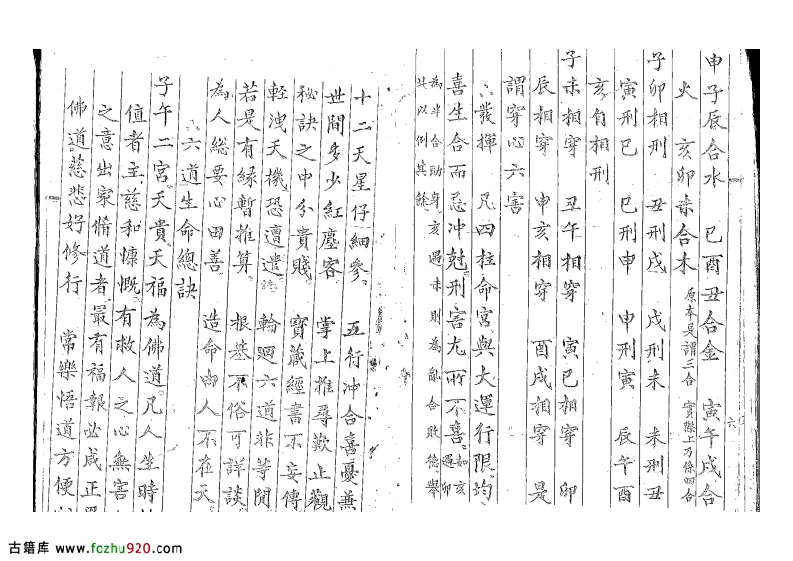 申子辰合水 巳酉丑合金 寅午戌合
火 亥卯未合木 原本是謂三合 實際上乃條四合
子卯相刑 丑刑戌 戌刑未 未刑丑
寅刑巳 巳刑申 申刑寅 辰午酉
亥自相刑
子未相穿 丑午相穿 寅巳相穿 卯
辰相穿 申亥相穿 酉戌相穿 是
謂穿心六害
發揮 凡四柱命宮與大運行限均
喜生合而忌冲尅刑害尤所不喜 如亥遇卯
為半合助身 亥遇未則為亂合敗德 舉
此以例其餘
十二天星仔細參 五行冲合喜憂兼
世間多少紅塵客 掌上推尋歎止觀
秘訣之中分貴賤 寶藏經書不妄傳
輕洩天機恐遭遣 輪廻六道非等閒
若是有緣暫推算 根基不俗可詳談
為人總要心田善 造命由人不在天
六道生命總訣
子午二宮天貴天福為佛道凡人生時
值者主慈和慷慨有救人之心無害
之意出家脩道者最有福報必成正
佛道慈悲好修行 常樂悟道方便
六
古籍库 www.fozhu920.com